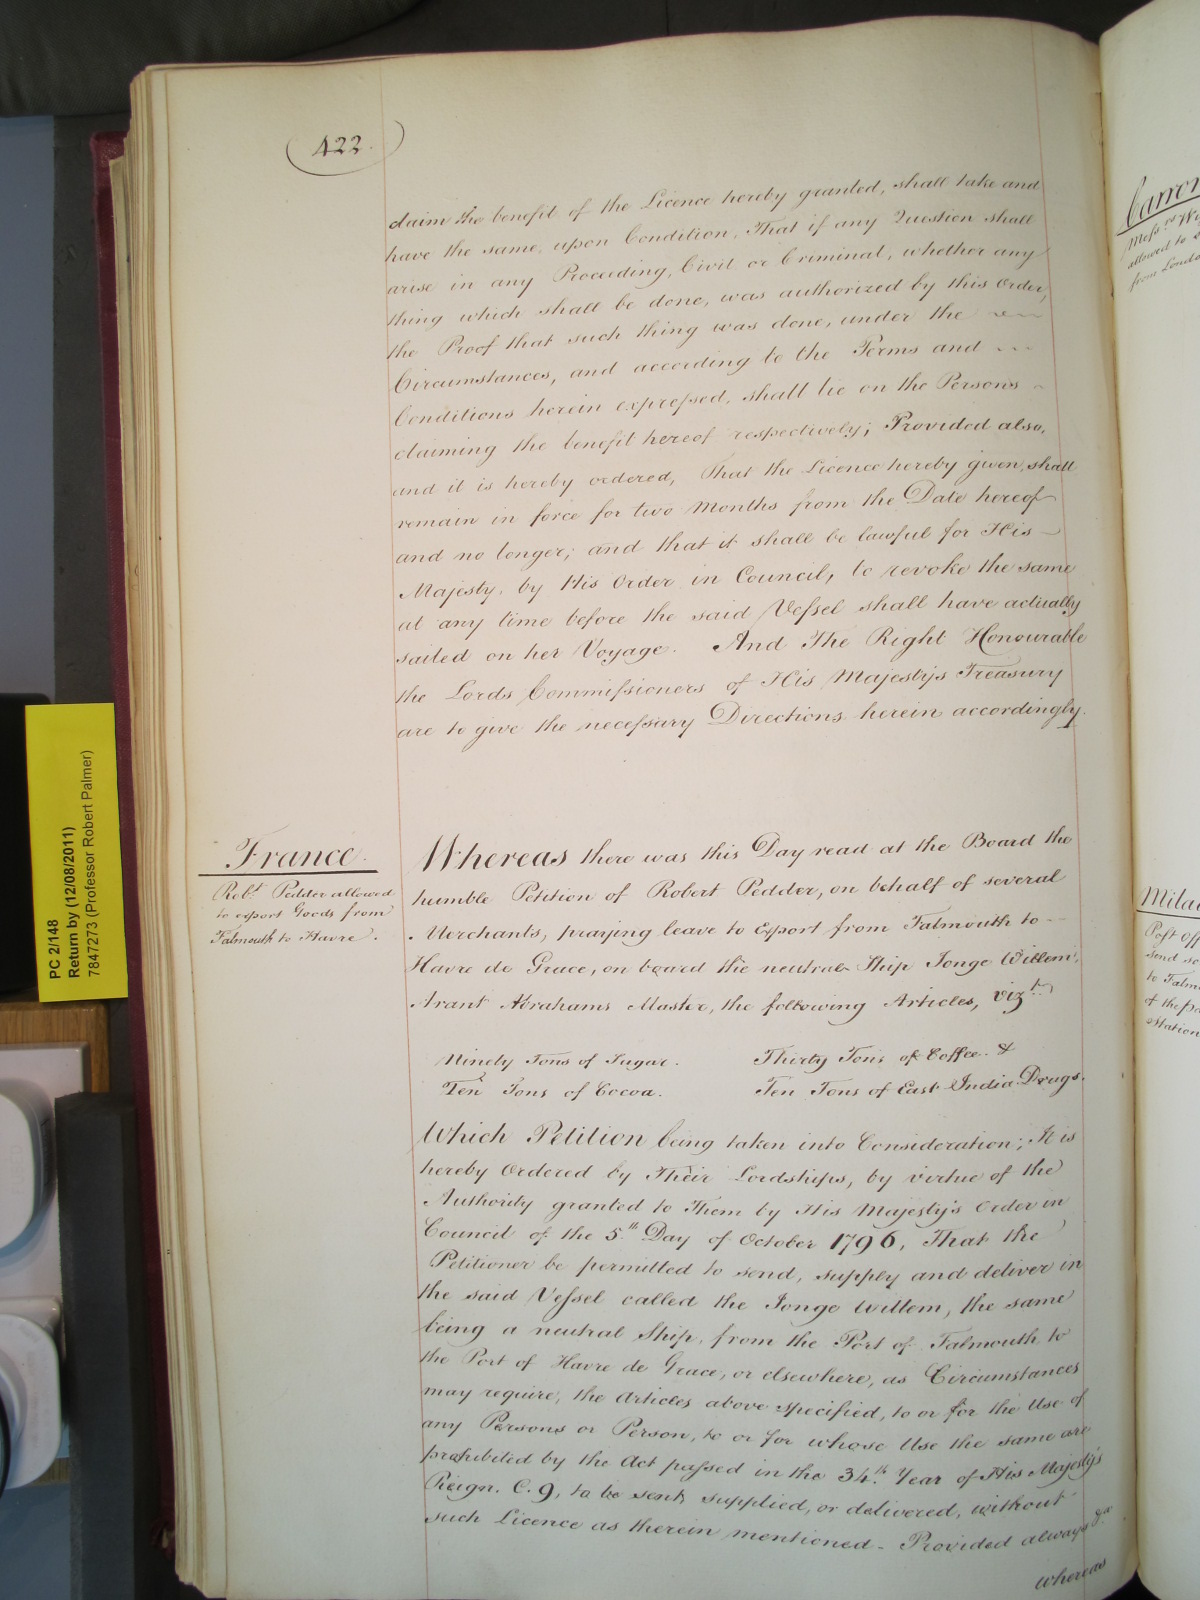 422.
claim the benefit of the Licence hereby granted, shall take and
have the same, upon Condition, That if any Question shall
arise in any Proceeding, Civil or Criminal, whether any
thing which shall be done, was authorized by this Order,
the Proof that such thing was done, under the
Circumstances, and according to the Terms and
Conditions herein expressed, shall lie on the Persons
claiming the benefit hereof respectively; Provided also,
and it is hereby ordered, That the Licence hereby given, shall
remain in force for two Months from the Date hereof
and no longer; and that it shall be lawful for His
Majesty, by His Order in Council, to revoke the same
at any time before the said Vessel shall have actually
sailed on her Voyage. And The Right Honourable
the Lords Commissioners of His Majesty's Treasury
are to give the necessary Directions herein accordingly.
France.
Robt. Pedder allowed
to export Goods from
Falmouth to Havre.
Whereas there was this Day read at the Board the
humble Petition of Robert Pedder, on behalf of several
Merchants, praying leave to Export from Falmouth to
Havre de Grace, on board the neutral Ship Jonge Willem,
Arant Abrahams Master, the following Articles, vizt.
Ninety Tons of Sugar. Thirty Tons of Coffee. &
Ten Tons of Cocoa. Ten Tons of East India Drugs.
Which Petition being taken into Consideration; It is
hereby Ordered by Their Lordships, by virtue of the
Authority granted to Them by His Majesty's Order in
Council of the 5th Day of October 1796, That the
Petitioner be permitted to send, supply and deliver in
the said Vessel called the Jonge Willem, the same
being a neutral Ship, from the Port of Falmouth to
the Port of Havre de Grace, or elsewhere, as Circumstances
may require, the Articles above specified, to or for the Use of
any Persons or Person, to or for whose Use the same are
prohibited by the Act passed in the 34th Year of His Majesty's
Reign. C. 9, to be sent, supplied, or delivered, without
such Licence as therein mentioned - Provided always &ca
whereas
PC 2/148
Return by (12/08/2011)
7847273 (Professor Robert Palmer)
allowed to
from London
Post Off
send
to Falm
of the
Station